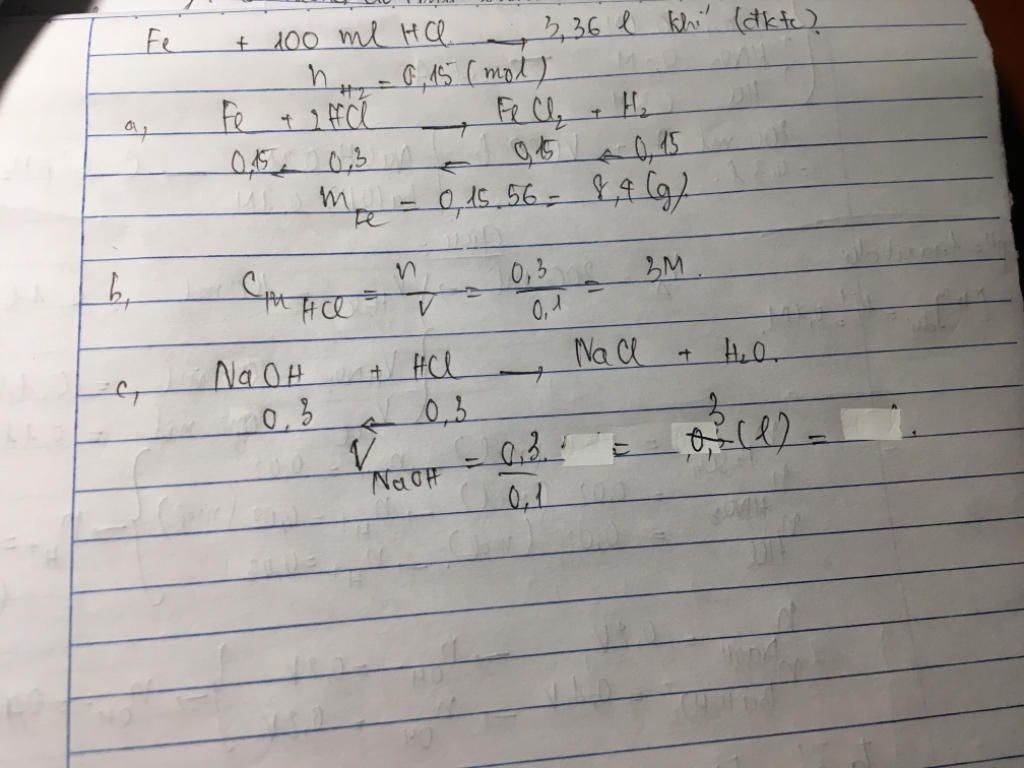 Fe + 100 ml HCl → 3,36 l khí (đktc)
n H2 = 0,15 (mol)
a, Fe + 2HCl → FeCl2 + H2
0,15 ← 0,3 ← 0,15 ← 0,15
m Fe = 0,15.56 = 8,4 (g)
b, CM HCl = n/V = 0,3/0,1 = 3M.
c, NaOH + HCl → NaCl + H2O.
0,3 ← 0,3
V NaOH = 0,3/0,1 = 3 (l) =